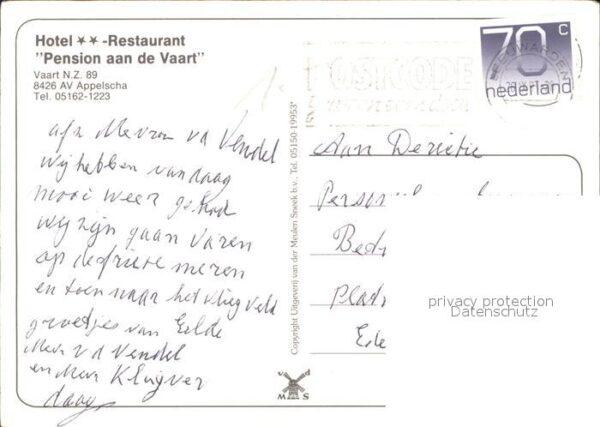 Hotel ★★ -Restaurant
"Pension aan de Vaart"
Vaart N.Z. 89
8426 AV Appelscha
Tel. 05162-1223
POSTCODE
LEEUWARDEN
70 c
nederland
afz Mevrou vd Vendel
wij hebben vandaag
mooi weer gehad
wij zijn gaan varen
op de friese meren
en toen naar het vliegveld
groetjes van Eelde
Mevr vd Vendel
en Mevr Kluyver
daag
Copyright Uitgeverij van der Meulen Sneek b.v., Tel. 05150-19953*
Aan
Person
Bed
Ede
v d
M S
privacy protection
Datenschutz